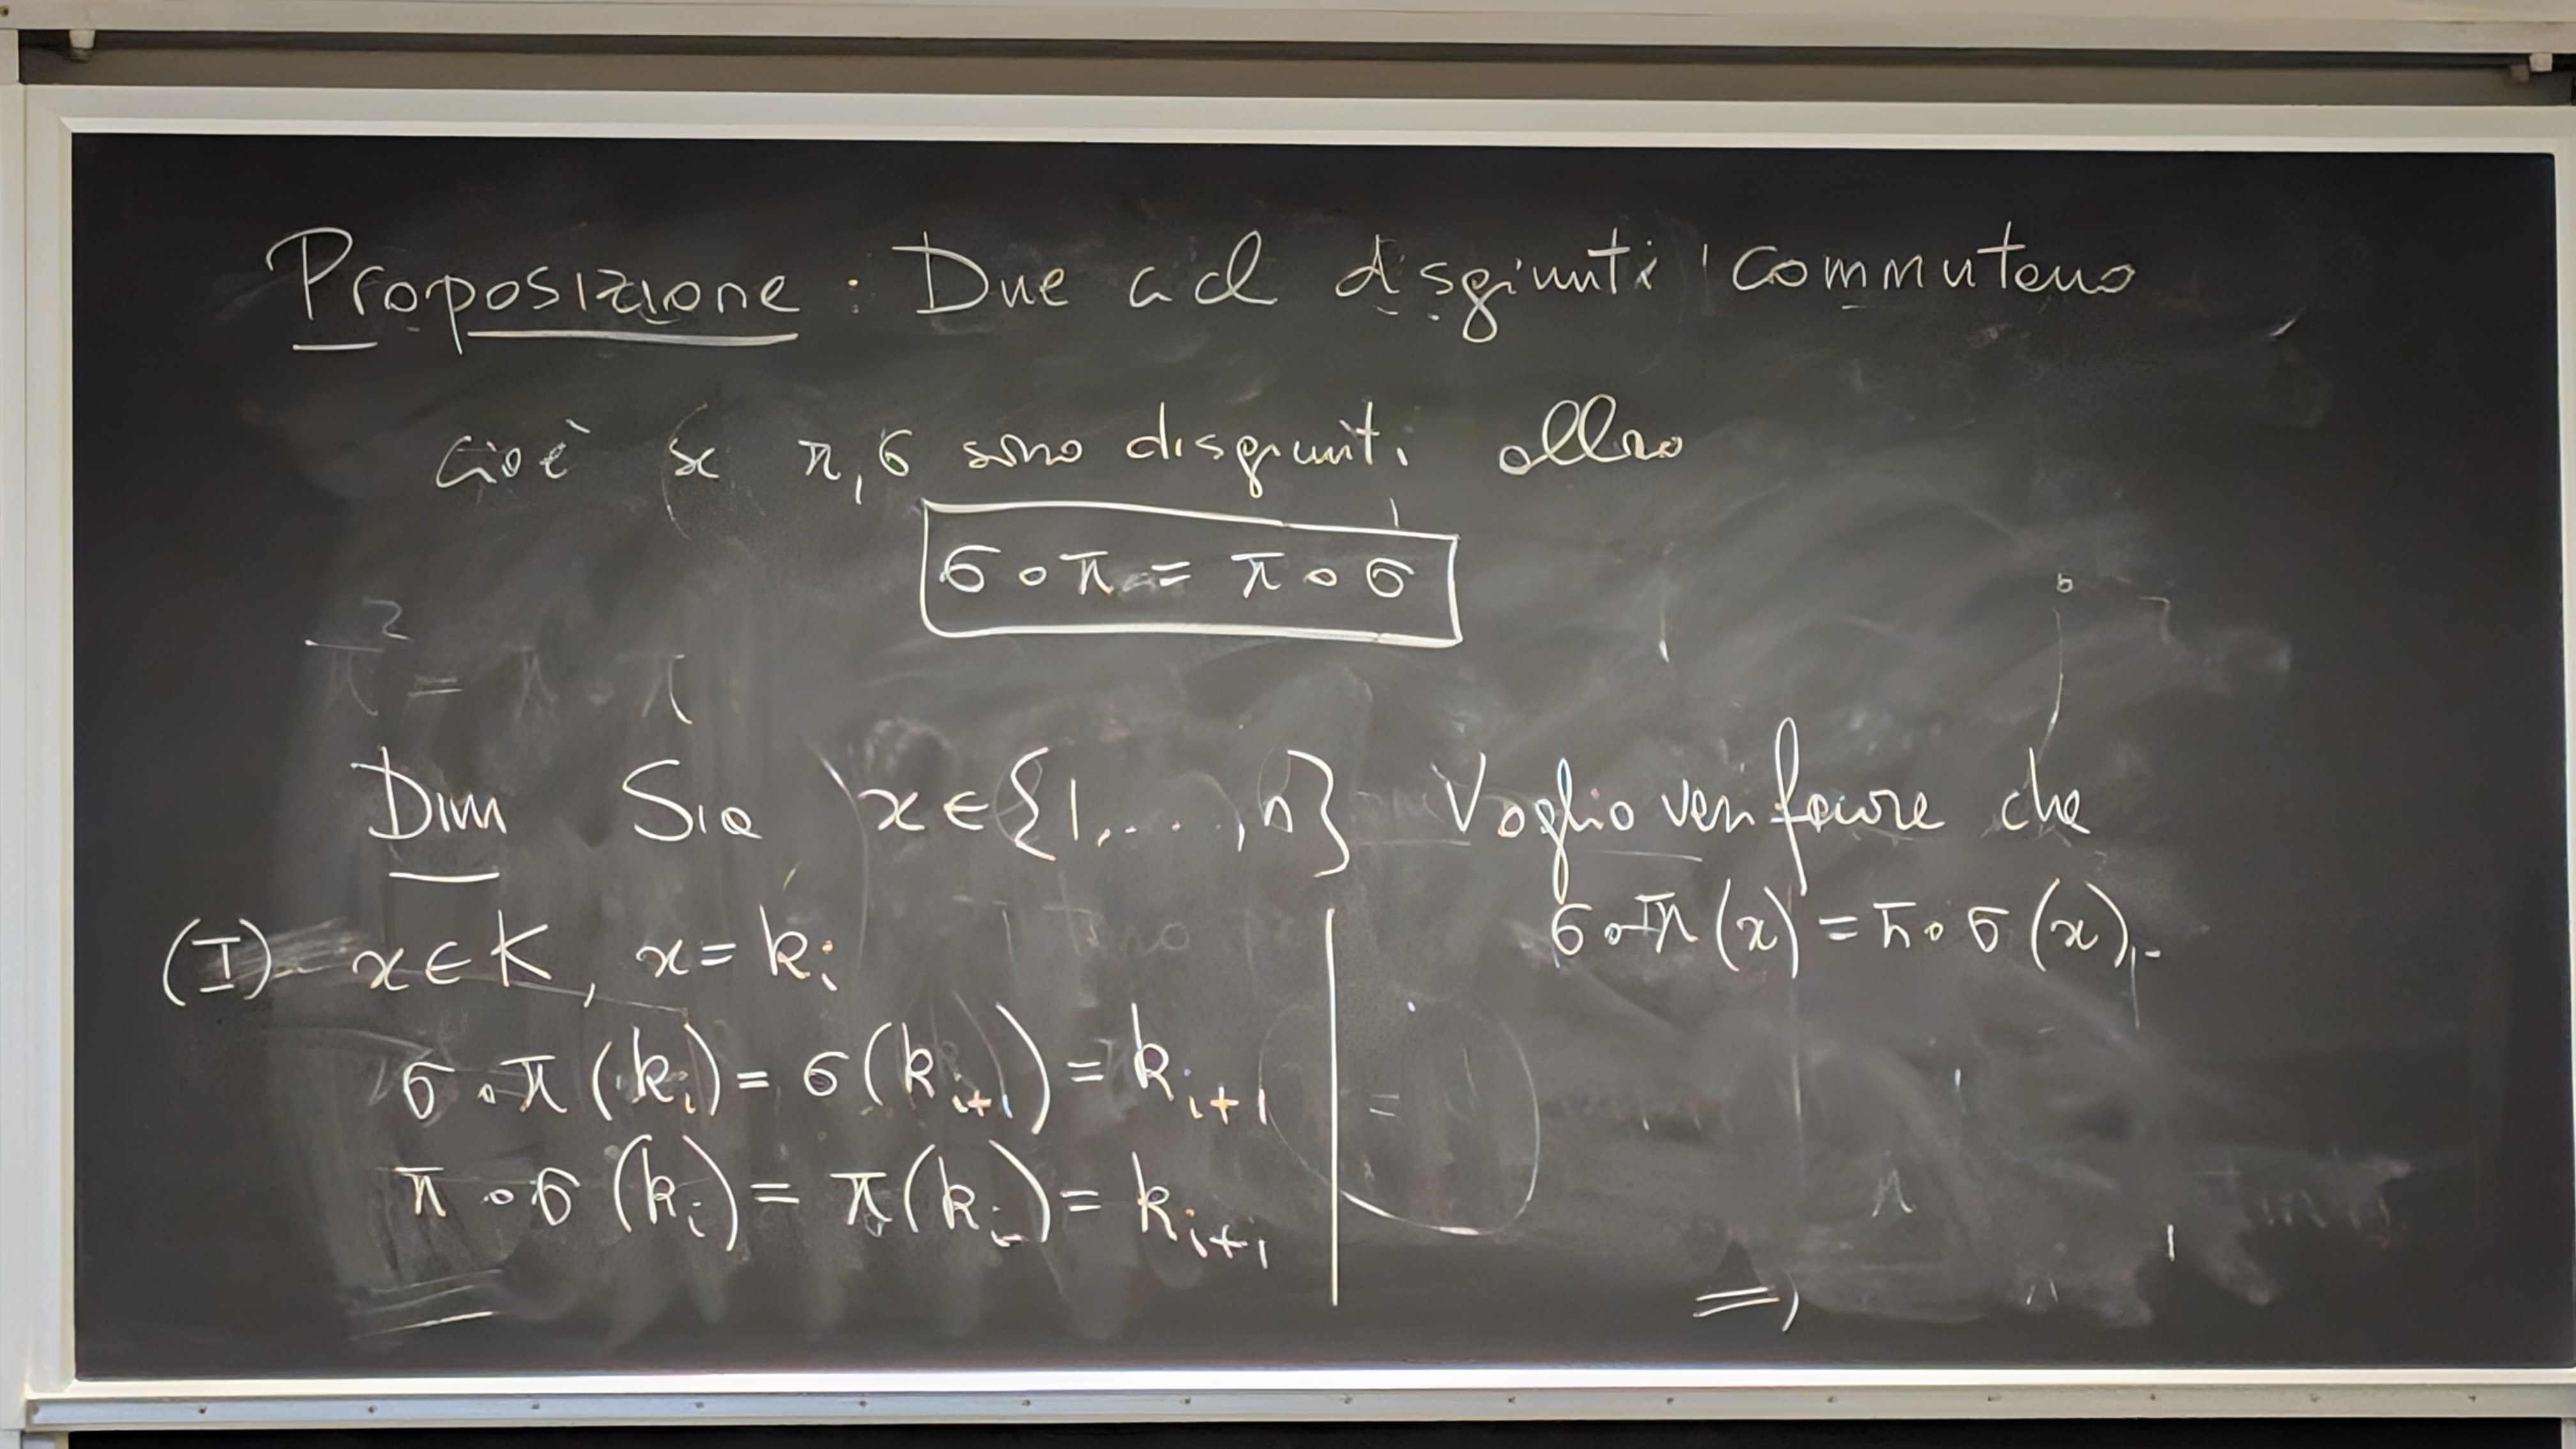 Proposizione : Due cicli disgiunti commutano
cioè se π, σ sono disgiunti allora
σ ∘ π = π ∘ σ
π² = π ∘ π
Dim Sia x ∈ {1, ..., n} Voglio verificare che
σ ∘ π (x) = π ∘ σ (x).
(I) x ∈ K, x = kᵢ
σ ∘ π (kᵢ) = σ (kᵢ₊₁) = kᵢ₊₁
π ∘ σ (kᵢ) = π (kᵢ) = kᵢ₊₁